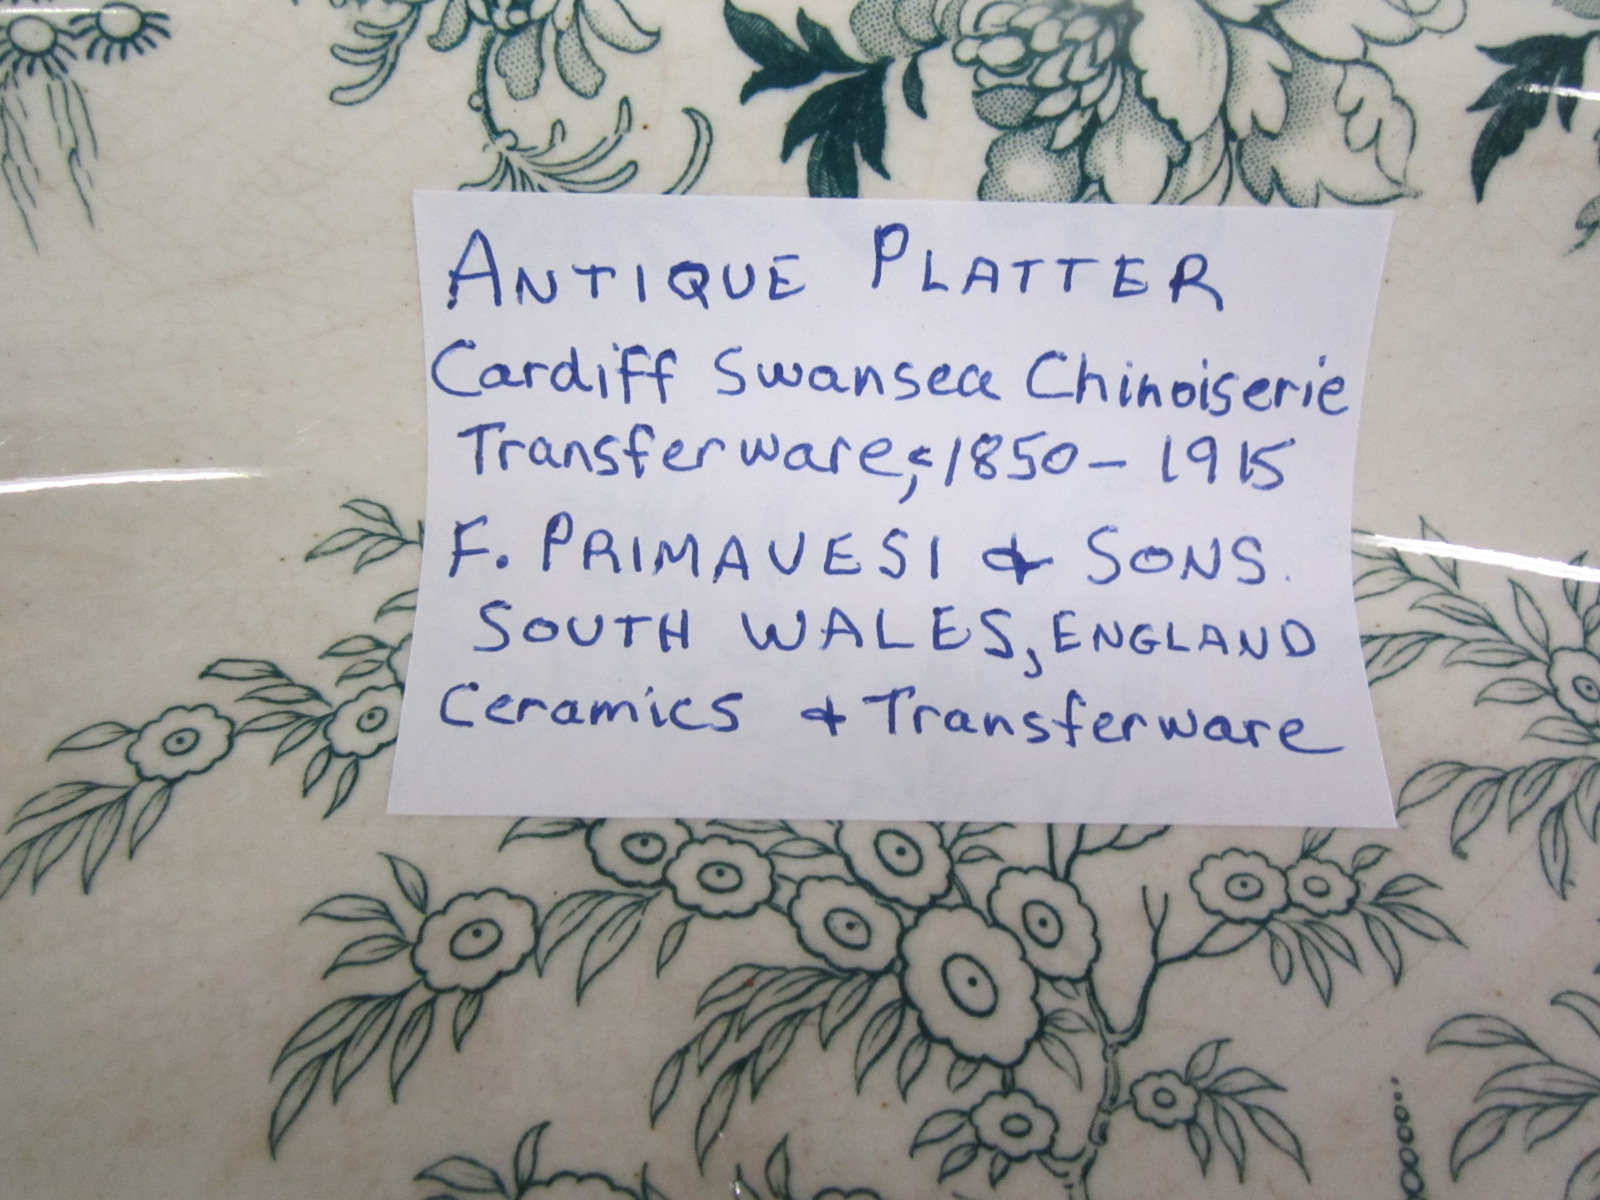 ANTIQUE PLATTER
Cardiff Swansea Chinoiserie
Transferware, 1850 - 1915
F. PRIMAVESI & SONS.
SOUTH WALES, ENGLAND
Ceramics & Transferware